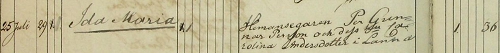 25 Juli 29 1. Ida Maria 1 Hemansegaren Per Gun-
nar Person och dess hu Ca
rolina Andersdotter i Lanna 1 36